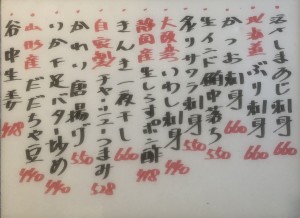 活〆しめじ刺身 660
北海道 ぶり刺身 660
かつお刺身 660
生インド鮪中落ち 550
炙りサワラ刺身 550
大阪湾 いわし刺身 440
静岡産 生しらすポン酢 418
きんき一夜干し 660
自家製 チャーシューつまみ 528
かわり唐揚げ 550
いかげそバター炒め 440
山形産 だだちゃ豆 440
谷中生姜 418